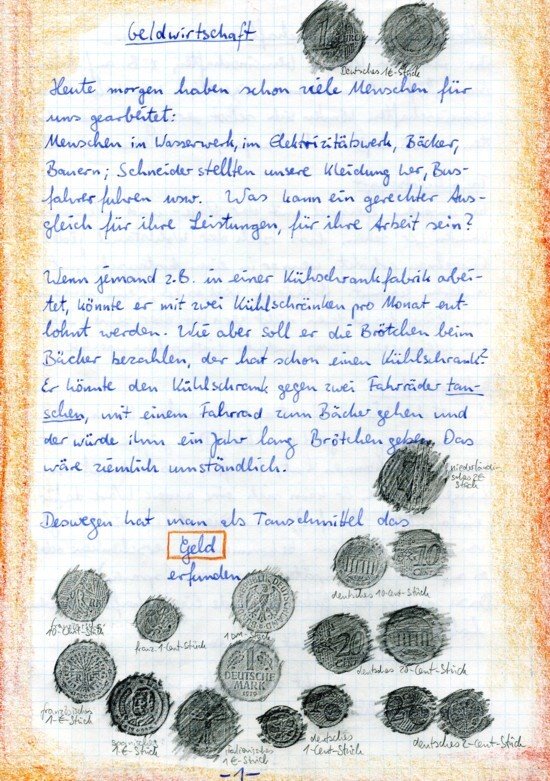 Geldwirtschaft
Deutsches 1€-Stück
Heute morgen haben schon viele Menschen für
uns gearbeitet:
Menschen im Wasserwerk, im Elektrizitätswerk, Bäcker,
Bauern; Schneider stellten unsere Kleidung her, Bus-
fahrer fuhren usw. Was kann ein gerechter Aus-
gleich für ihre Leistungen, für ihre Arbeit sein?
Wenn jemand z.B. in einer Kühschrankfabrik arbei-
tet, könnte er mit zwei Kühlschränken pro Monat ent-
lohnt werden. Wie aber soll er die Brötchen beim
Bäcker bezahlen, der hat schon einen Kühlschrank?
Er könnte den Kühlschrank gegen zwei Fahrräder tau-
schen, mit einem Fahrrad zum Bäcker gehen und
der würde ihm ein Jahr lang Brötchen geben. Das
wäre ziemlich umständlich.
niederländi-
sches 2€
Stück
Deswegen hat man als Tauschmittel das
Geld
erfunden
10
deutsches 10-Cent-Stück
10-Cent-Stück
franz. 1 Cent-Stück
1 DM-Stück
20
deutsches 20-Cent-Stück
1
DEUTSCHE
MARK
französisches
1-€-Stück
1€-Stück
italienisches
1€-Stück
deutsches
1-Cent-Stück
deutsches 2-Cent-Stück
-1-